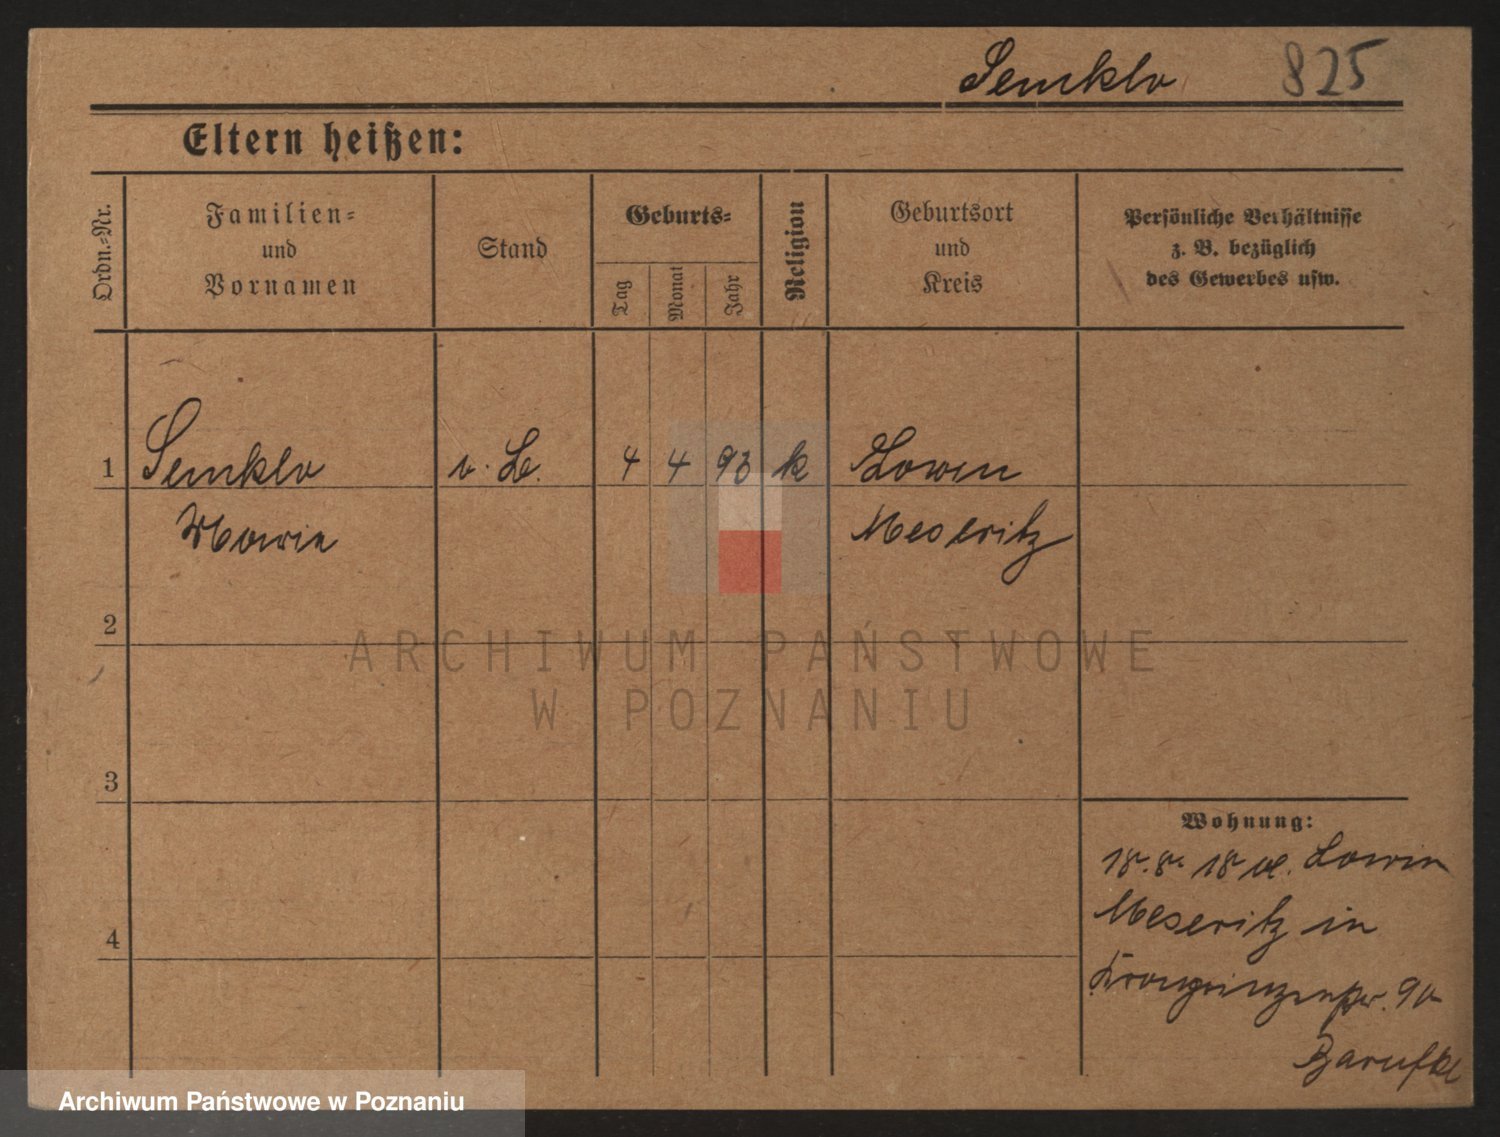 Semklo 825
Eltern heißen:
Ordn.-Nr.
Familien-
und
Vornamen
Stand
Geburts-
Tag
Monat
Jahr
Religion
Geburtsort
und
Kreis
Persönliche Verhältnisse
z. B. bezüglich
des Gewerbes usw.
1 Semklo 4 4 93 k Lowin
Maria Meseritz
2
3
4
Wohnung:
18. 8. 18 Lowin
Meseritz in
Kronprinzenstr. 90
ARCHIWUM PAŃSTWOWE
W POZNANIU
Archiwum Państwowe w Poznaniu